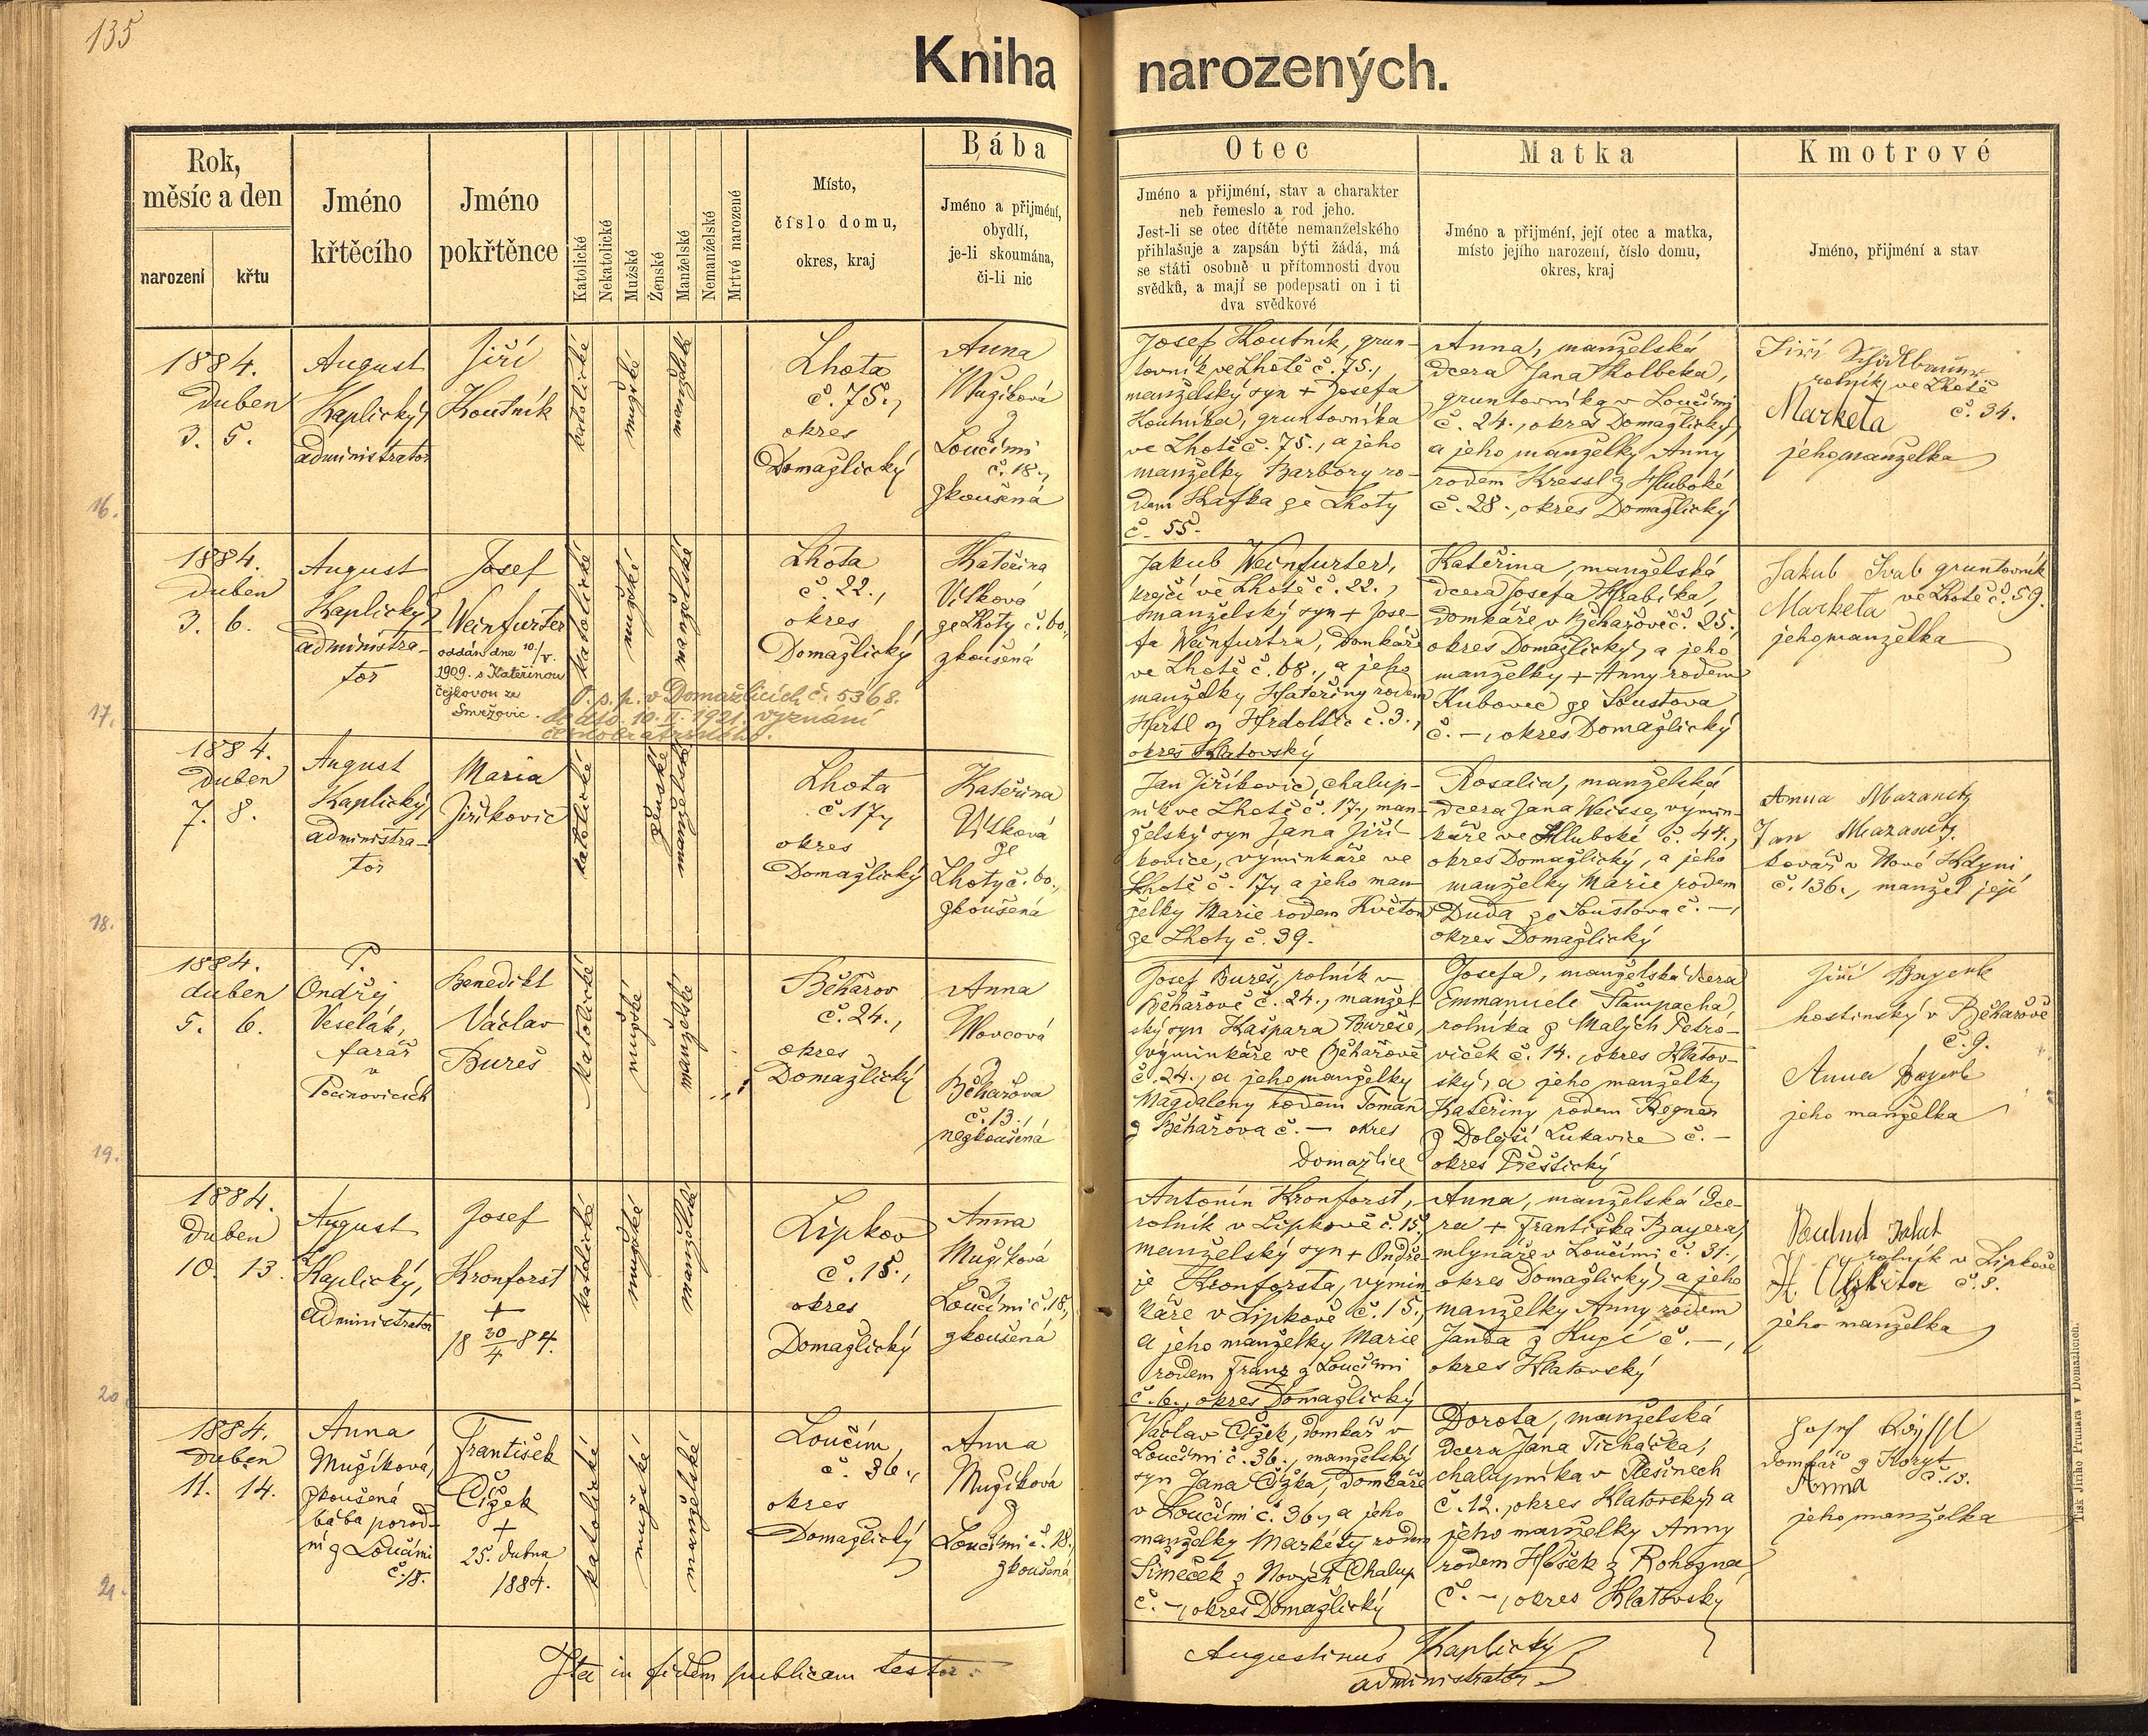 135
Kniha narozených.
Rok,
měsíc a den
narození
křtu
Jméno
křtěcího
Jméno
pokřtěnce
Katolické
Nekatolické
Mužské
Ženské
Manželské
Nemanželské
Mrtvě narozené
Místo,
číslo domu,
okres, kraj
Bába
Jméno a přijmění,
obydlí,
je-li skoumána,
či-li nic
Otec
Jméno a přijmění, stav a charakter
neb řemeslo a rod jeho.
Jest-li se otec dítěte nemanželského
přihlašuje a zapsán býti žádá, má
se státi osobně u přítomnosti dvou
svědků, a mají se podepsati on i ti
dva svědkové
Matka
Jméno a přijmění, její otec a matka,
místo jejího narození, číslo domu,
okres, kraj
Kmotrové
Jméno, přijmění a stav
16.
1884.
Duben
3. 5.
August
Kaplický,
administrator
Jiří
Koutník
katolické
mužské
manželské
Lhota
č. 75.,
okres
Domažlický
Anna
Mužíková
z
Loučimi
č. 18.,
zkoušená
Josef Koutník, grun-
tovník ve Lhotě č. 75.,
manželský syn + Josefa
Koutníka, gruntovníka
ve Lhotě č. 75., a jeho
manželky Barbory ro-
dem Kafka ze Lhoty
č. 55.
Anna, manželská
dcera Jana Kolbeka,
gruntovníka v Loučimi
č. 24., okres Domažlický,
a jeho manželky Anny
rodem Kressl z Hluboké
č. 28., okres Domažlický
Jiří
rolník ve Lhotě
Marketa č. 34.
jeho manželka
17.
1884.
Duben
3. 6.
August
Kaplický,
administra-
tor
Josef
Weinfurter
oddán dne 10./V.
1909. s Kateřinou
Čejkovou ze
Smržovic.
katolické
mužské
manželské
Lhota
č. 22.,
okres
Domažlický
O. p. p. v Domažlicích č. 5368.
de dto. 10. II. 1921. vyznání
českobratrského.
Kateřina
Vítková
ze Lhoty č. 60.,
zkoušená
Jakub Weinfurter,
krejčí ve Lhotě č. 22.,
manželský syn + Jose-
fa Weinfurtra, domkáře
ve Lhotě č. 68., a jeho
manželky Kateřiny rodem
Hartl z č. 3.,
okres Klatovský
Kateřina, manželská
dcera Josefa Hrabíka,
domkáře v Běhařově č. 25.,
okres Domažlický, a jeho
manželky + Anny rodem
Kubovec ze Soustova
č. –, okres Domažlický
Jakub Švab gruntovník
ve Lhotě č. 59.
Marketa
jeho manželka
18.
1884.
Duben
7. 8.
August
Kaplický,
administra-
tor
Maria
Jiříkovic
katolické
ženské
manželské
Lhota
č. 17.,
okres
Domažlický
Kateřina
Vítková
ze
Lhoty č. 60.,
zkoušená
Jan Jiříkovic, chalup-
ník ve Lhotě č. 17., man-
želský syn Jana Jiří-
kovice, výminkáře ve
Lhotě č. 17., a jeho man-
želky Marie rodem Květon
ze Lhoty č. 39.
Rosalia, manželská
dcera Jana Weisse, výmin-
káře ve Hluboké č. 44.,
okres Domažlický, a jeho
manželky Marie rodem
Duda ze Soustova č. –,
okres Domažlický
Anna Mazanetz
Jan Mazanetz
kovář v Nové Kdyni
č. 136., manžel její
19.
1884.
duben
5. 6.
P.
Ondřej
Veselák,
farář
v
Počinovicích
Benedikt
Václav
Bureš
katolické
mužské
manželské
Běhařov
č. 24.,
okres
Domažlický
Anna
Vovcová
z
Běhařova
č. 13.,
nezkoušená
Josef Bureš, rolník v
Běhařově č. 24., manžel-
ský syn Kašpara Bureše,
výminkáře ve Běhařově
č. 24., a jeho manželky
Magdaleny rodem Toman
z Běhařova č. – okres
Domažlice
Josefa, manželská dcera
Emmanuele Štampacha,
rolníka z Malých Petro-
viček č. 14., okres Klatov-
ský, a jeho manželky
Kateřiny rodem Regner
z Dolejší Lukavice č. –
okres Přeštický
Jiří Bayerle
hostinský v Běhařově
č. 9.
Anna Bayerle
jeho manželka
20.
1884.
Duben
10. 13.
August
Kaplický,
administrator
Josef
Kronforst
+
18 30/4 84.
katolické
mužské
manželské
Lipkov
č. 15.,
okres
Domažlický
Anna
Mužíková
z
Loučimi č. 18.,
zkoušená
Antonín Kronforst,
rolník v Lipkově č. 15.,
manželský syn + Ondře-
je Kronforsta, výmin-
káře v Lipkově č. 15.,
a jeho manželky Marie
rodem Franz z Loučimi
č. 6., okres Domažlický
Anna, manželská dce-
ra + Františka Bayera,
mlynáře v Loučimi č. 31.,
okres Domažlický, a jeho
manželky Anny rodem
Janda z Kupí č. –,
okres Klatovský
rolník v Lipkově
č. 8.
jeho manželka
21.
1884.
Duben
11. 14.
Anna
Mužíková,
zkoušená
bába porod-
ní z Loučimi
č. 18.
František
Čížek
+
25. dubna
1884.
katolické
mužské
manželské
Loučim,
č. 36.,
okres
Domažlický
Anna
Mužíková
z
Loučimi č. 18.,
zkoušená
Václav Čížek, domkář v
Loučimi č. 36., manželský
syn Jana Čížka, domkáře
v Loučimi č. 36., a jeho
manželky Markéty rodem
Šimeček z Nových Chalup
č. –, okres Domažlický
Dorota, manželská
dcera Jana Ticháčka,
chalupníka v Plešinech
č. 12., okres Klatovský, a
jeho manželky Anny
rodem Hošek z Rohozna,
č. –, okres Klatovský
Josef
domkář z Koryt
Anna č. 13.
jeho manželka
Ita in fidem publicam testor:
Augustinus Kaplický,
administrator
Tisk Jiřího Prunara v Domažlicích.